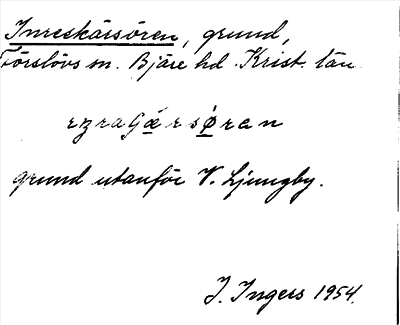 Inreskärsören, grund,
Förslövs sn. Bjäre hd. Krist. län
grund utanför V. Ljungby.
I. Ingers 1954.